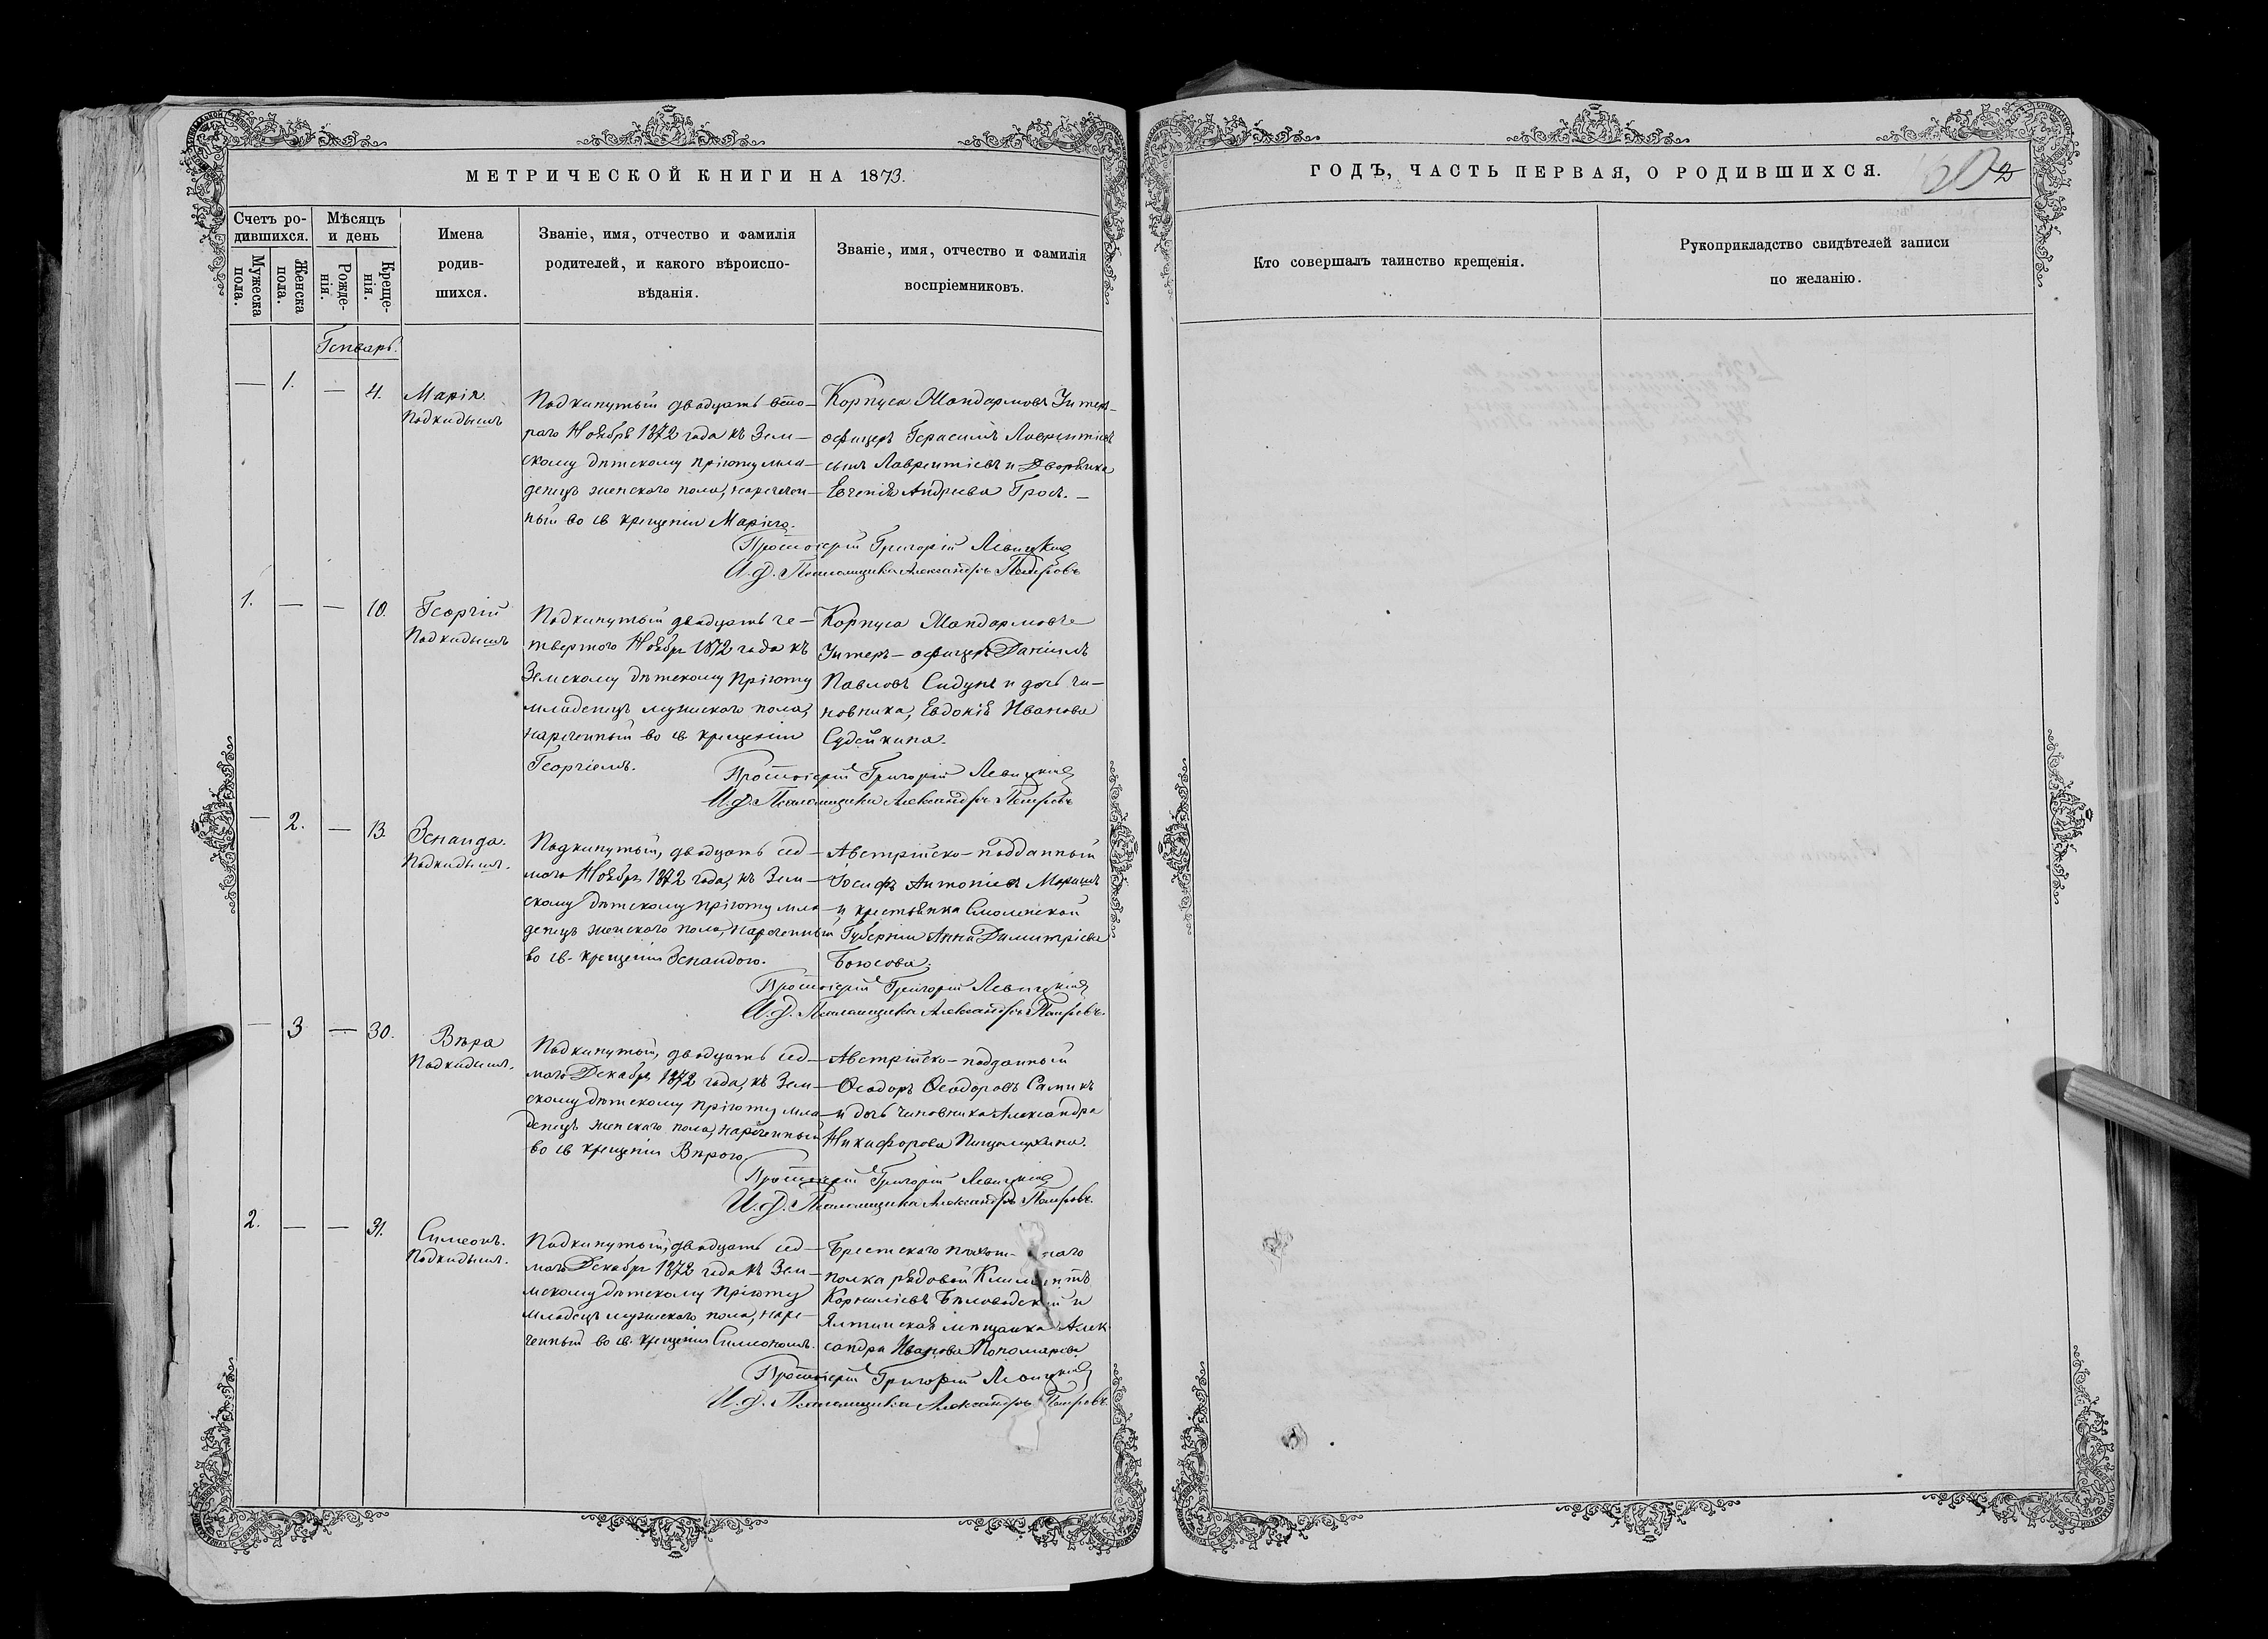 МЕТРИЧЕСКОЙ КНИГИ НА 1873.
Счетъ ро-
дившихся.
Мужеска
пола.
Женска
пола.
Мѣсяцъ
и день
Рожде-
нія.
Креще-
нія.
Имена
родив-
шихся.
Званіе, имя, отчество и фамилія
родителей, и какого вѣроиспо-
вѣданія.
Званіе, имя, отчество и фамилія
воспріемниковъ.
Генварь.
— 1. — 4.
Марія.
Подкидышъ
Подкинутый двадцать вто-
раго Ноября 1872 года къ Зем-
скому дѣтскому пріюту мла-
денецъ женскаго пола, наречен-
ный во св крещеніи Маріею.
Корпуса Жандармовъ Унтеръ-
офицеръ Герасимъ Лаврентіевъ
сынъ Лаврентіевъ и Дворянка
Евгенія Андреева Гросъ. —
Протоіерей Григорій Левицкій
И. д. Псаломщика Александръ Петровъ
1. — — 10.
Георгій
Подкидышъ
Подкинутый двадцать че-
твертого Ноября 1872 года къ
Земскому дѣтскому Пріюту
младенецъ мужскаго пола,
нареченный во св крещеніи
Георгіемъ.
Корпуса Жандармовъ
Унтеръ-офицеръ Даніилъ
Павловъ Сидунъ и дочь чи-
новника, Евдокія Иванова
Судейкина.
Протоіерей Григорій Левицкій
И. д. Псаломщика Александръ Петровъ
— 2. — 13.
Зенаида.
Подкидышъ.
Подкинутый, двадцать сед-
мого Ноября 1872 года, къ Зем-
скому дѣтскому пріюту мла-
денецъ женскаго пола, нареченный
во св. крещеніи Зенаидою.
Австрійско-подданный
Іосифъ Антоніевъ Маришъ
и крестьянка Смоленской
Губерніи Анна Димитріева
Боюсова.
Протоіерей Григорій Левицкій
И. д. Псаломщика Александръ Петровъ.
— 3 — 30.
Вѣра
Подкидышъ.
Подкинутый, двадцать сед-
мого Декабря 1872 года, къ Зем-
скому дѣтскому пріюту мла-
денецъ женскаго пола, нареченный
во св крещеніи Вѣрою
Австрійско-подданный
Ѳеодоръ Ѳеодоровъ Самикъ
и дочь чиновника Александра
Никифорова
Протоіерей Григорій Левицкій
И. д. Псаломщика Александръ Петровъ.
2. — — 31.
Симеонъ.
Подкидышъ.
Подкинутый, двадцать сед-
мого Декабря 1872 года къ Зем-
мскому дѣтскому Пріюту
младецъ мужскаго пола, наре-
ченный во св. крещеніи Симеономъ.
Брестскаго пѣхотнаго
полка рядовой Климентъ
Корниліевъ Бѣловодскій и
Ялтинская мѣщанка Алек
сандра Иванова Пономарева
Протоіерей Григорій Левицкій
И. д. Псаломщика Александръ Петровъ.
ГОДЪ, ЧАСТЬ ПЕРВАЯ, О РОДИВШИХСЯ.
Кто совершалъ таинство крещенія.
Рукоприкладство свидѣтелей записи
по желанію.